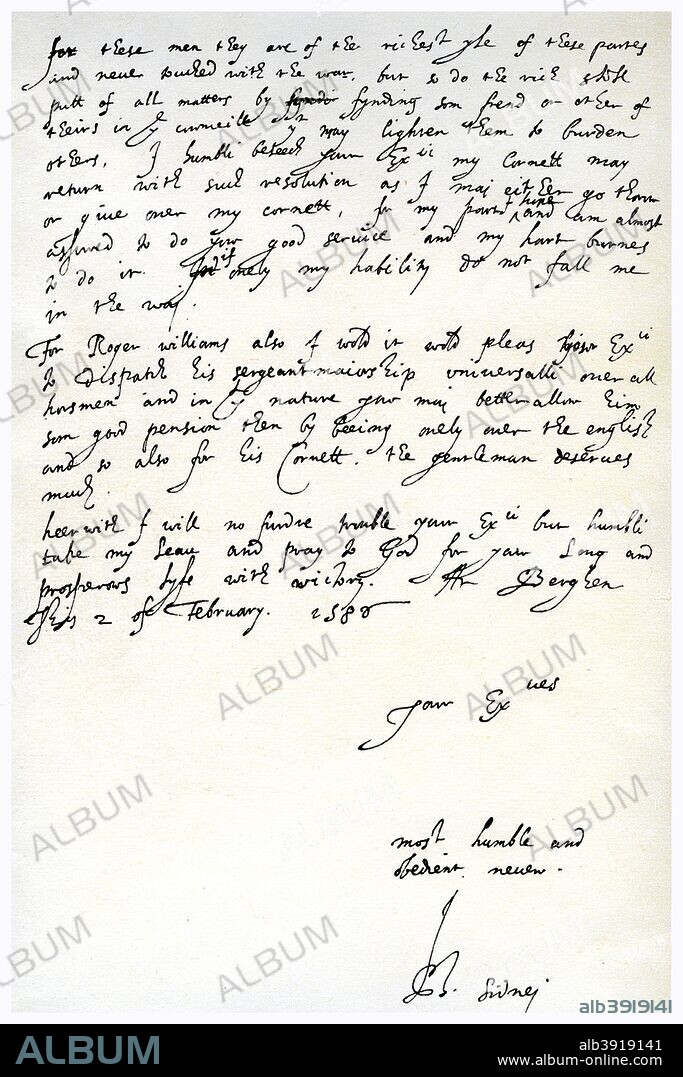 for these men they are of the richest yle of these partes
and never touched with the war, but so do the rich still
putt of all matters by fynding som frend or other of
theirs in ye cowncell yt may lighten them to burden
others, I humbli beseech yowr Ex ii my Cornett may
return with such resolution as I mai either go thorow
or give over my cornett, for my part hing and am almost
assured to do yow good service and my hart burnes
to do it. if onely my hability do not fall me
in the way.
For Roger williams also I wold it wold pleas yowr Ex ii
to dispatch his sergeant maiorship universalli over all
horsmen and in ye nature yow mai better allow him
som good pension then by beeing onely over the english
and so also for his Cornett. the gentleman deserues
much.
heerwith I will no furdre trouble yowr Ex ii but humbli
take my leau and pray to God for yowr long and
prosperows lyfe with victory. At Berghen
this 2 of February. 1586
Yowr Ex ues
most humble and
obedient neuew.
Ph. Sidnei
ALBUM
alb3919141
ALBUM
alb3919141
www.album-online.com